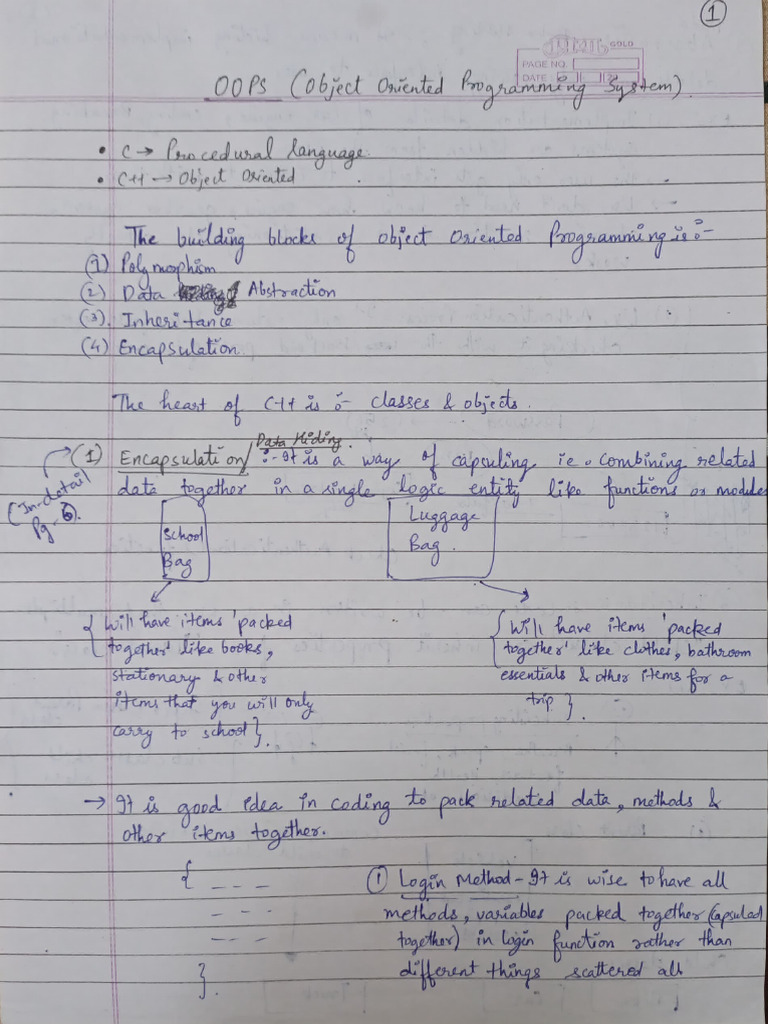 1
GOLD
PAGE NO.
DATE
OOPS (Object Oriented Programming System)
• C → Procedural language.
• C++ → Object Oriented
The building blocks of object Oriented Programming is :-
(1) Polymorphism
(2) Data Abstraction
(3) Inheritance
(4) Encapsulation
The heart of C++ is :- classes & objects.
Data Hiding.
(1) Encapsulation/ :- It is a way of capsuling ie. combining related
data together in a single logic entity like functions or modules
(In-detail
Pg-6).
School
Bag
Luggage
Bag.
{ Will have items 'packed
together' like books,
stationary & other
items that you will only
carry to school}.
{ Will have items 'packed
together' like clothes, bathroom
essentials & other items for a
trip }.
→ It is good idea in coding to pack related data, methods &
other items together.
{ - - -
- - -
- - -
}.
(1) Login Method - It is wise to have all
methods, variables packed together (capsuled
together) in login function rather than
different things scattered all